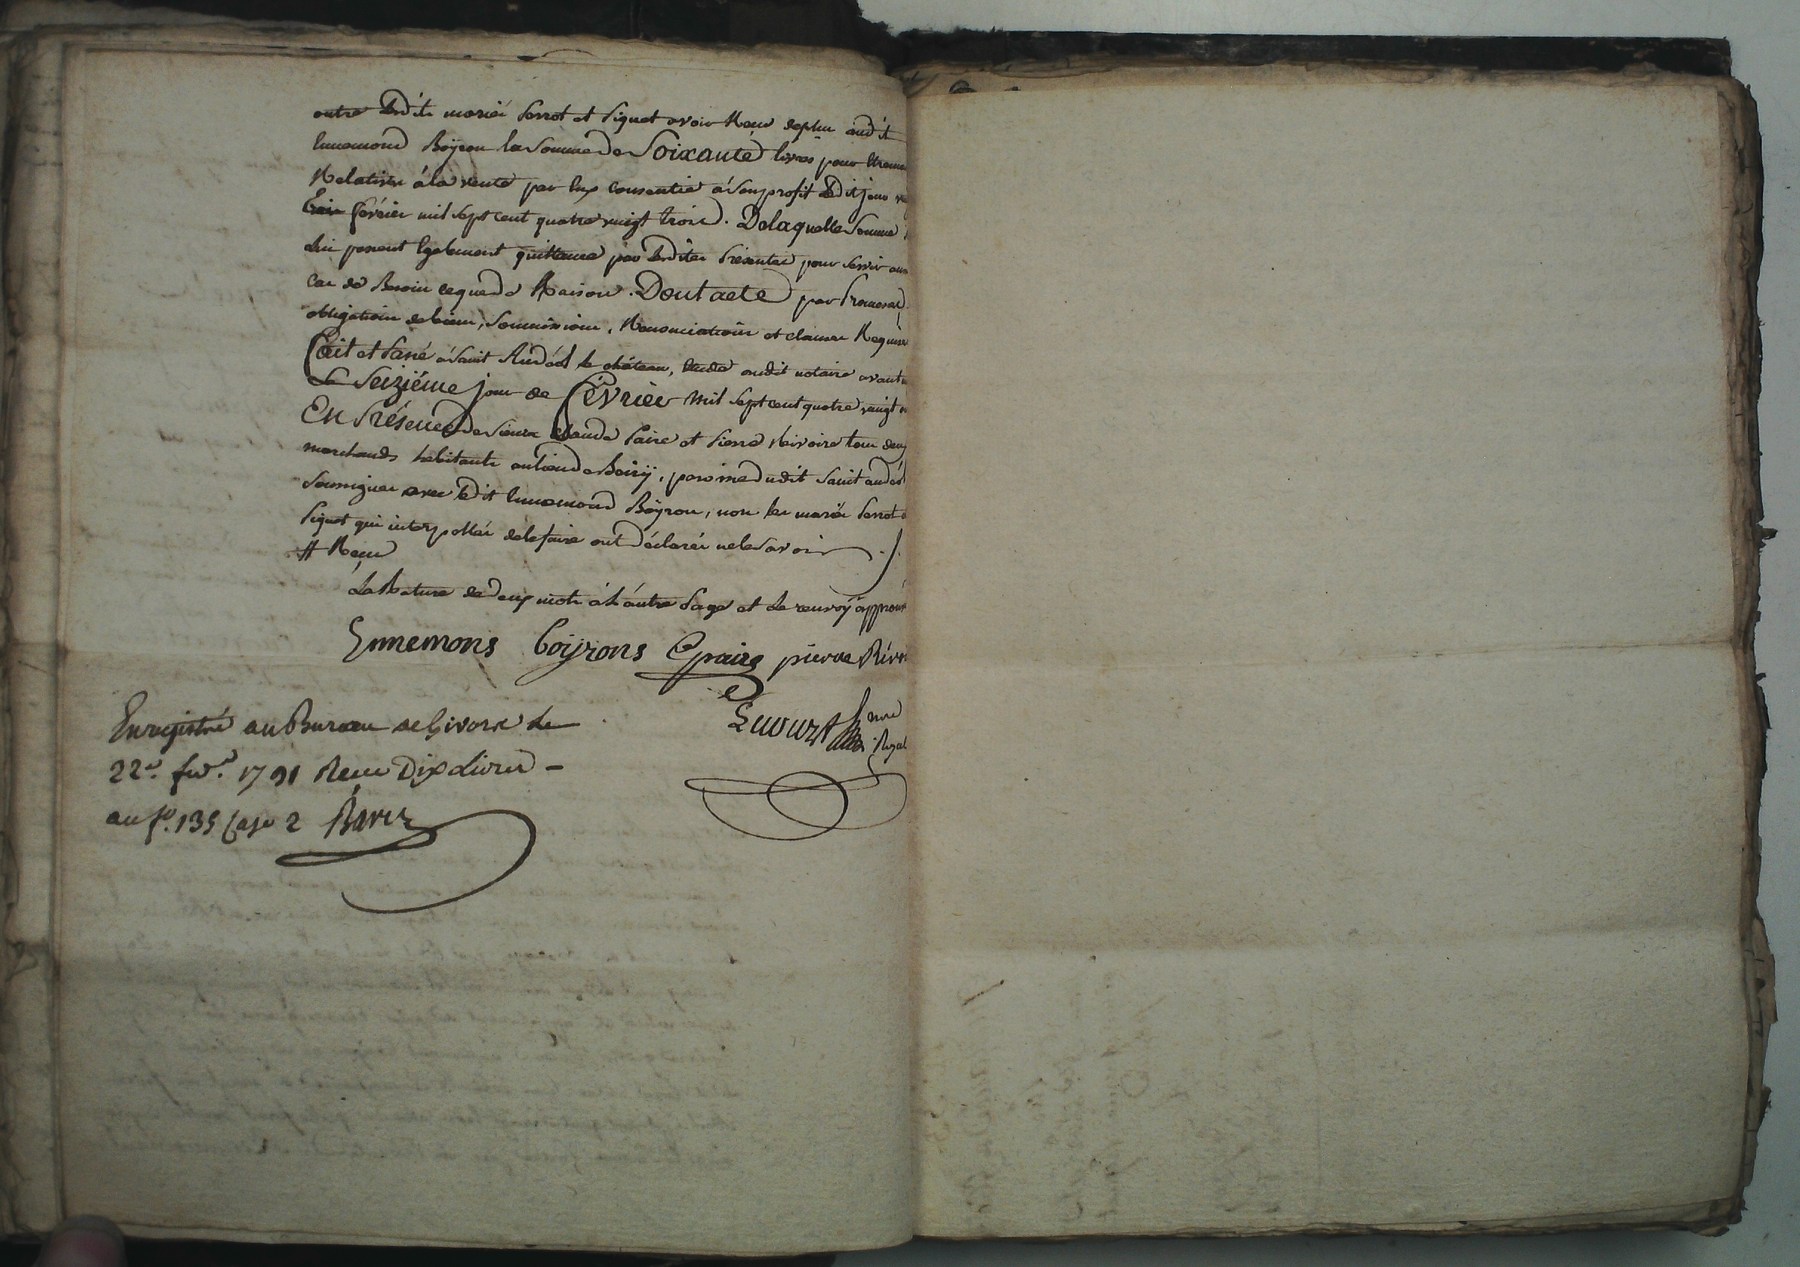 outre Lesdits mariés perrot et piquet avoir Receu deplus audit
Ennemond Boÿron la Somme de Soixante livres pour
Relatives à la vente par Eux consentie à Son profit Ledit jour
trois février mil Sept cent quatre vingt trois. De laquelle Somme
Lui passent Egalement quittance par Lesdites présentes pour Servir au
cas de Besoin ce que de Raison. Dont acte par Promesses
obligation de biens, Soumissions, Renonciations et clauses Requises
fait et passé à Saint Andéol le château, Etude dudit notaire avant
Le Seizième jour de février mil Sept cent quatre vingt
En Présence de Sieurs Claude paire et pierre Rivoire tous deux
marchands habitants au lieu de , paroisse dudit Saint andéol
Soussignés avec Ledit Ennemond Boÿron, non les mariés perrot
piquet qui interpellés de le faire ont Déclaré ne le Savoir ./.
# Receu
La Rature de deux mots à L'autre page et Le renvoÿ approuvé
Ennemons boÿrons Cpaire pierre Rivo
nore
Royal
Enregistré au Bureau de Givors Le
22e. fer. 1791 Receu Dix Livres
au fo. 135 Case 2